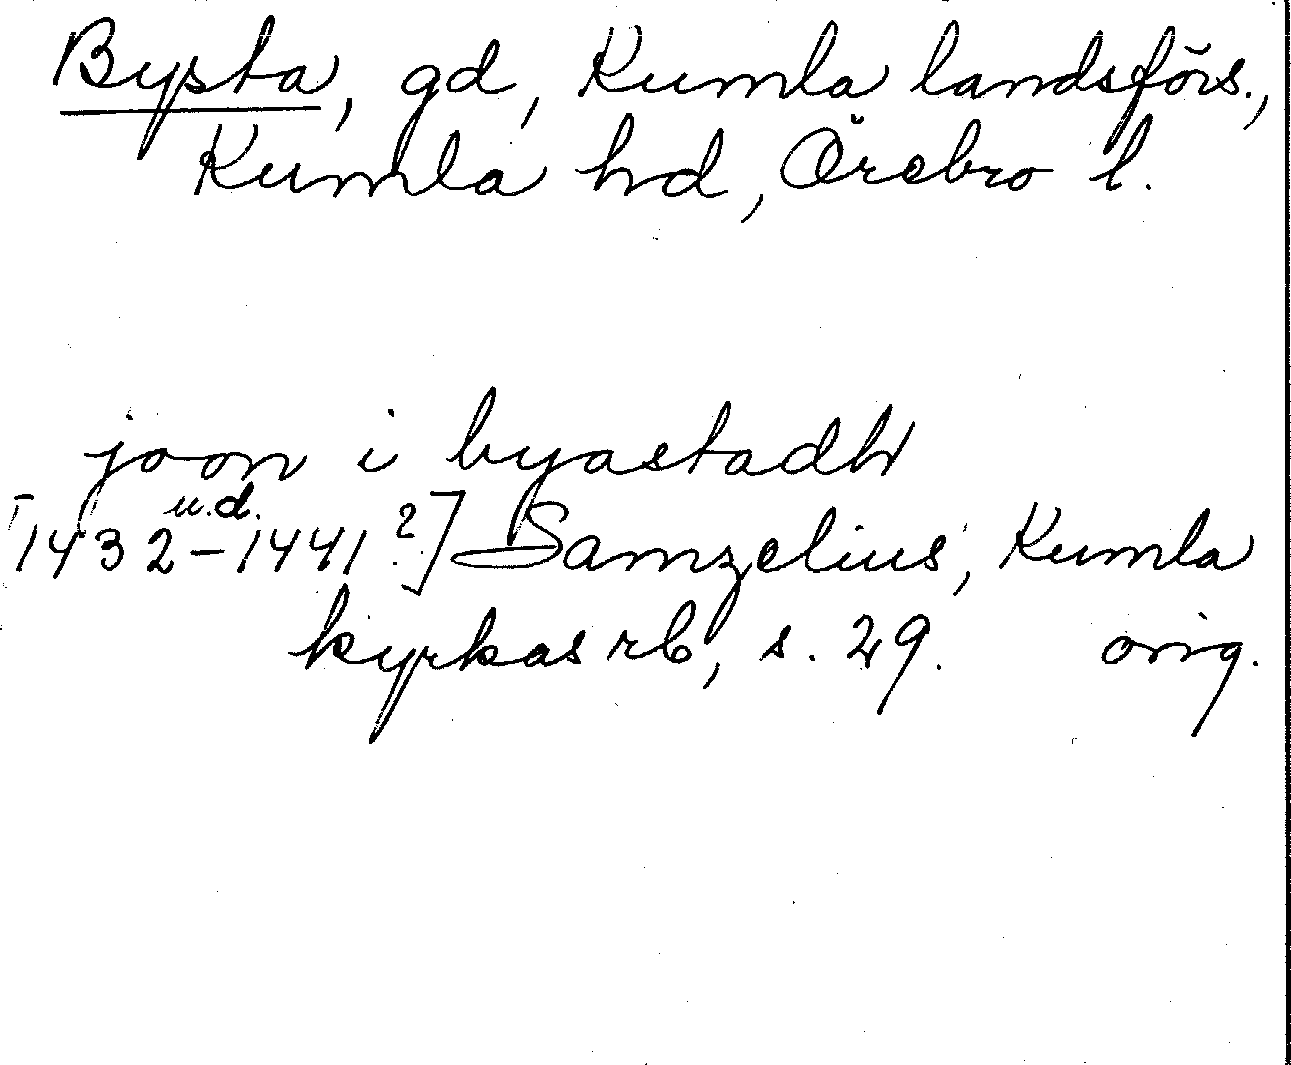 Bysta, gd, Kumla landsförs.,
Kumla hd, Örebro l.
joon i byastadh
u.d.
[1432–1441?] Samzelius, Kumla
kyrkas rb, s. 29. orig.